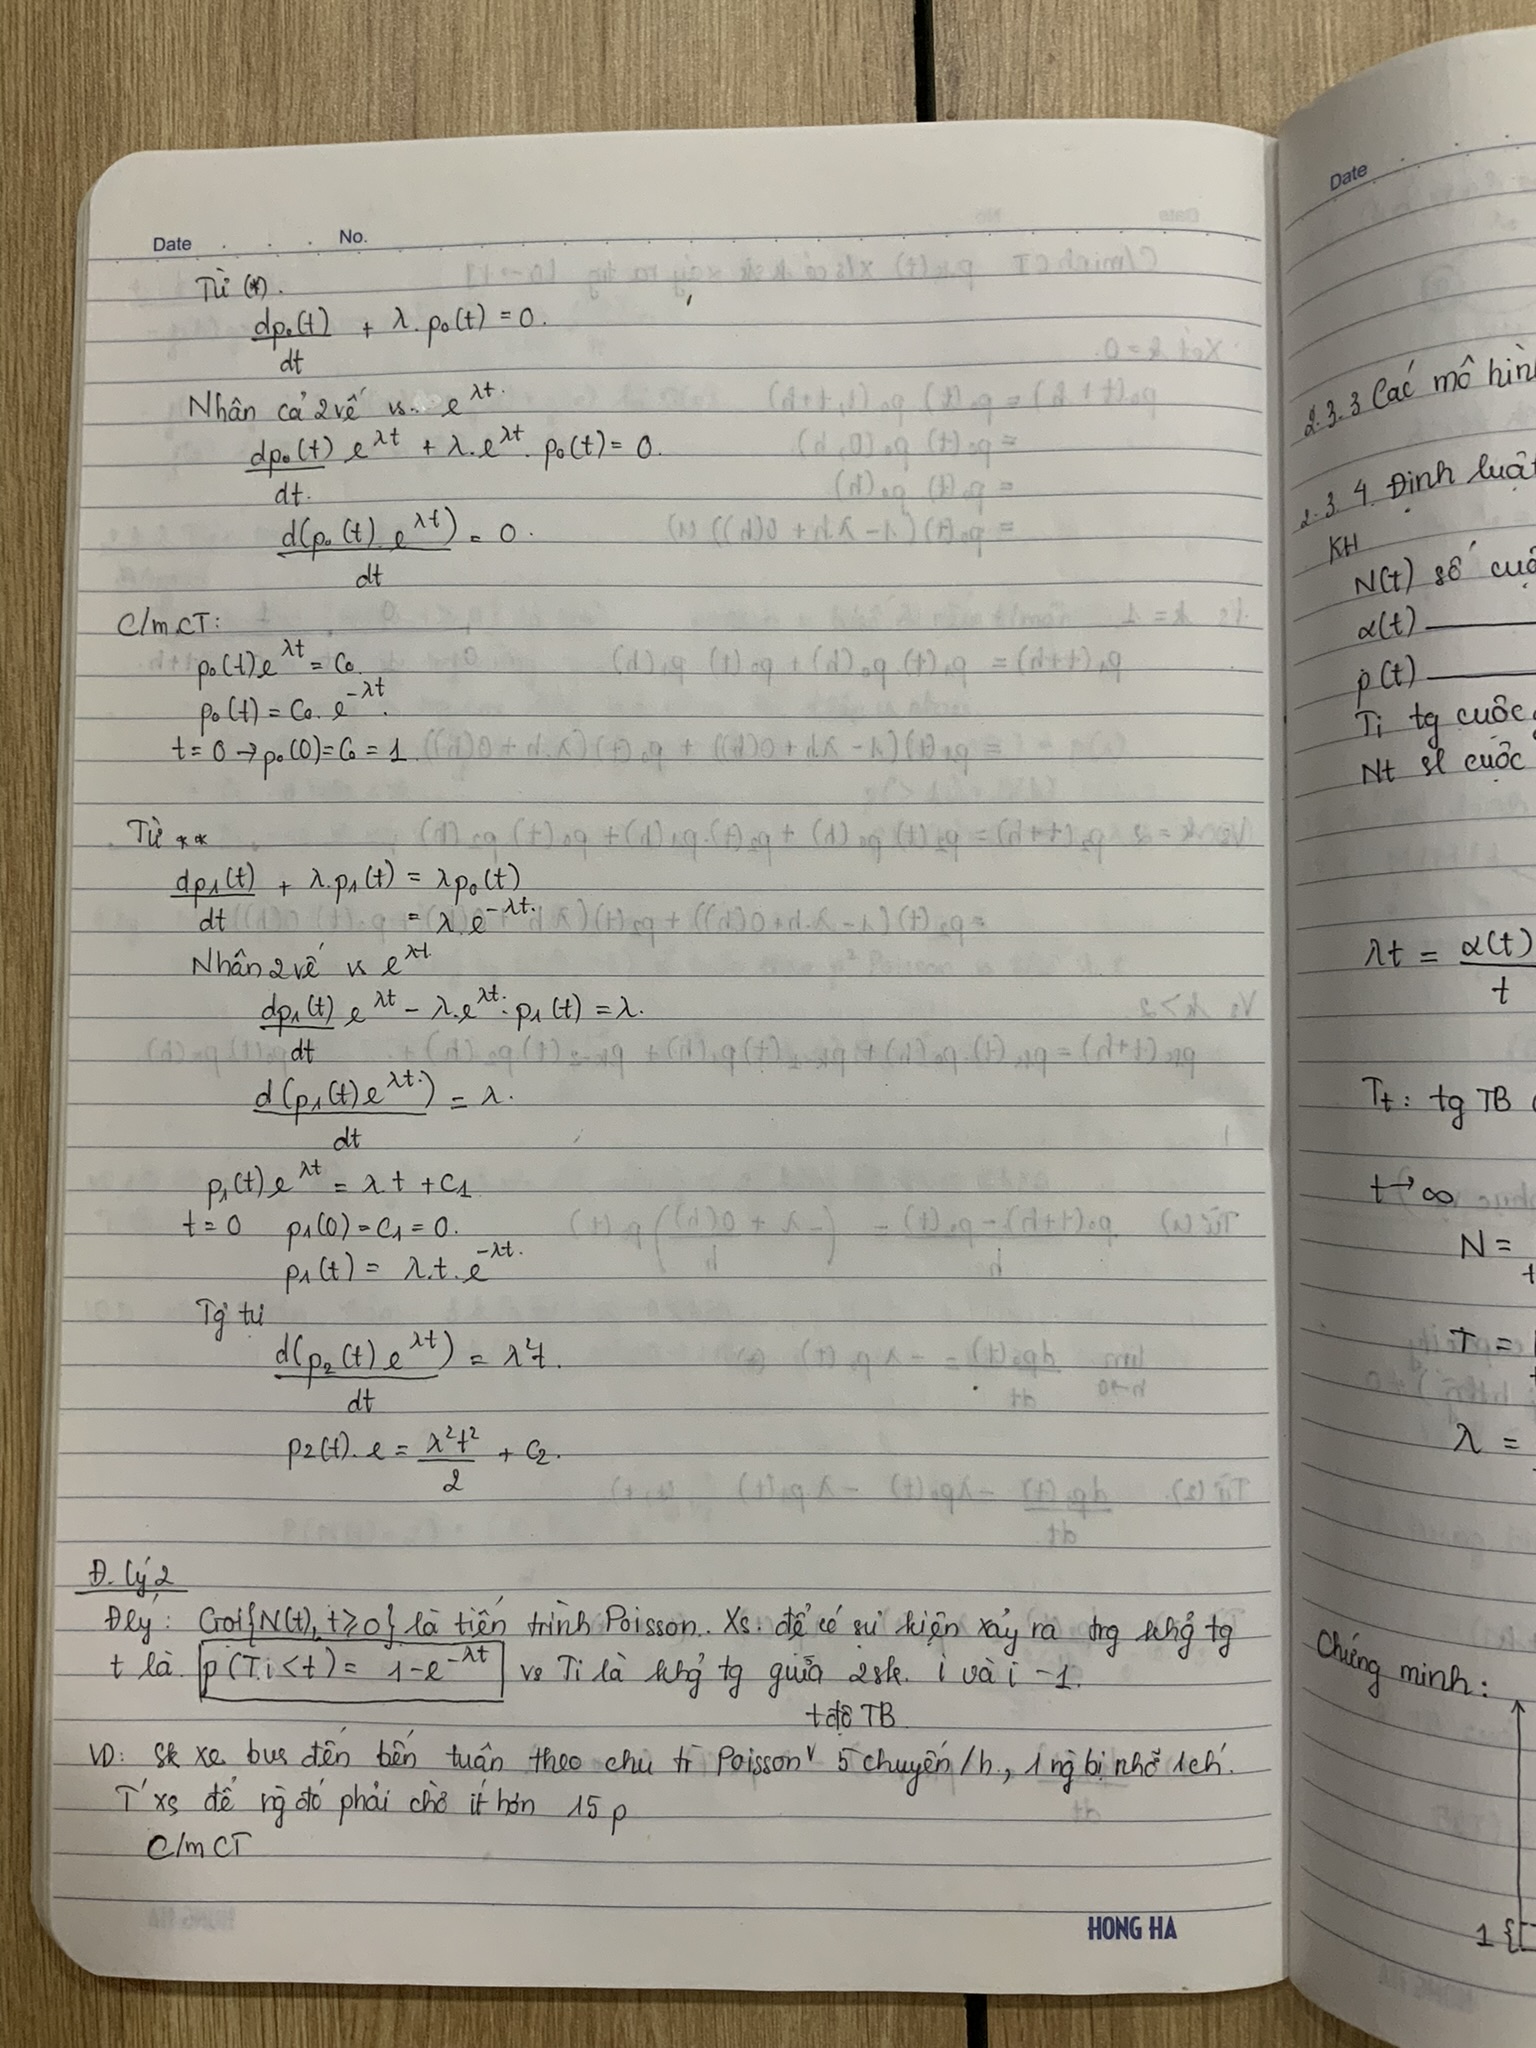 Date No.
Từ (*).
dp₀(t)/dt + λ.p₀(t) = 0.
Nhân cả 2 vế vs e^λt.
dp₀(t)/dt. e^λt + λ.e^λt. p₀(t) = 0.
d(p₀(t) e^λt)/dt = 0.
C/m CT:
p₀(t) e^λt = C₀
p₀(t) = C₀. e^-λt.
t = 0 → p₀(0) = C₀ = 1
Từ **
dp₁(t)/dt + λ.p₁(t) = λp₀(t)
= λ.e^-λt.
Nhân 2 vế vs e^λt
dp₁(t)/dt e^λt - λ.e^λt. p₁(t) = λ.
d(p₁(t)e^λt.)/dt = λ.
p₁(t)e^λt = λt + C₁
t = 0 p₁(0) = C₁ = 0.
p₁(t) = λ.t.e^-λt.
Tg tự
d(p₂(t) e^λt)/dt = λ²t.
p₂(t). e = λ²t²/2 + C₂.
Đ. lý 2
Đlý: Gọi {N(t), t ≥ 0} là tiến trình Poisson. Xs. để có sự kiện xảy ra trg khg tg
t là p(Ti < t) = 1 - e^-λt vs Ti là khg tg giữa 2 sk. i và i - 1.
t độ TB
VD: Sk xe bus đến bến tuân theo chu trì Poisson v 5 chuyến/h., 1 ng bị nhỡ 1 ch.
T' xs để ng đó phải chờ ít hơn 15 p
C/m CT
HONG HA
Date
2.3.3 Các mô hìn
2.3.4 Định luật
KH
N(t) số cuộ
α(t)
p(t)
Ti tg cuộc
Nt sl cuộc
λt = α(t)/t
Tt: tg TB
t → ∞
N =
T =
λ =
Chứng minh:
1 {